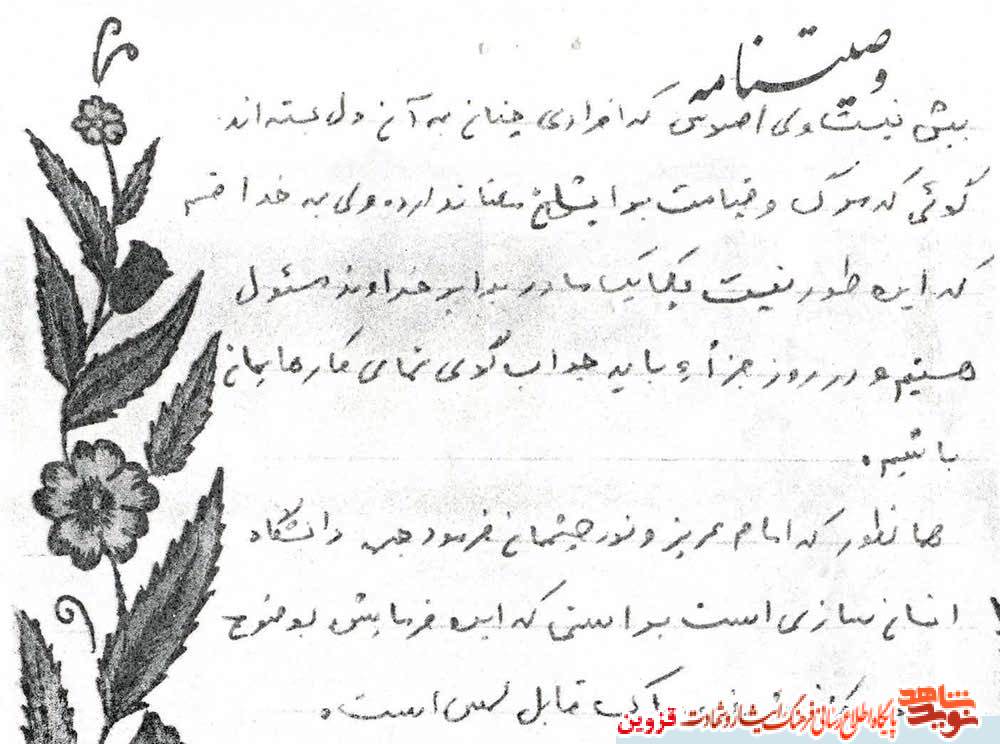 وصیتنامه
بیش نیست ولی افسوس که افرادی چنان به آن دل بسته اند
گوئی که مرگ و قیامت برایشان معنا ندارد ولی به خدا قسم
که این طور نیست یکایک ما در برابر خداوند مسئول
هستیم و در روز جزاء باید جواب گوی تمامی کارهایمان
باشیم.
همانطور که امام عزیز و نور چشمان فرمود جبهه دانشگاه
انسان سازی است براستی که این فرمایش بوضوح
قابل لمس است.
نوید شاهد
پایگاه اطلاع رسانی فرهنگ ایثار و شهادت قزوین